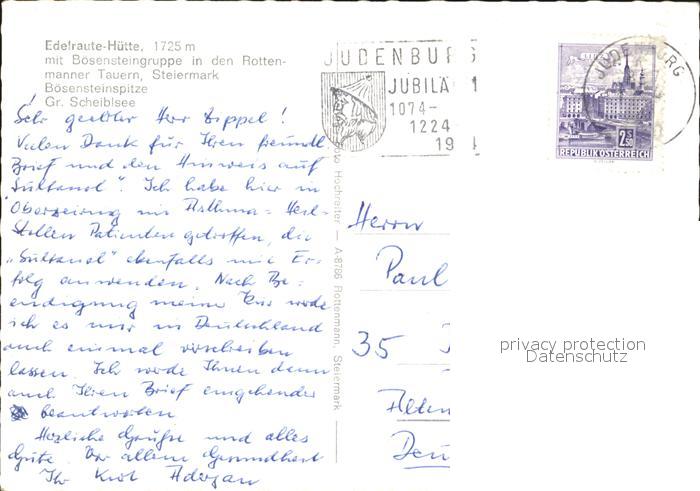 Edelraute-Hütte, 1725 m
mit Bösensteingruppe in den Rotten-
manner Tauern, Steiermark
Bösensteinspitze
Gr. Scheiblsee
Sehr geehrter Herr Zippel!
Vielen Dank für Ihren freundl
Brief und den Hinweis auf
"Sultanol". Ich habe hier in
Oberzeiring im Asthma-Heil-
Stollen Patienten getroffen, die
"Sultanol" ebenfalls mit Er-
folg anwenden. Nach Be-
endigung meiner Kur werde
ich es mir in Deutschland
auch einmal verschreiben
lassen. Ich werde Ihnen dann
auch Ihren Brief eingehender
beantworten
Herzliche Grüße und alles
Gute. Vor allem Gesundheit
Ihr Kurt
Hochreiter — A-8786 Rottenmann, Steiermark
JUDENBURG
JUBILÄ
1074-
1224
19
JUDENBURG
2.50 S
REPUBLIK ÖSTERREICH
Herrn
Paul
35
privacy protection
Datenschutz